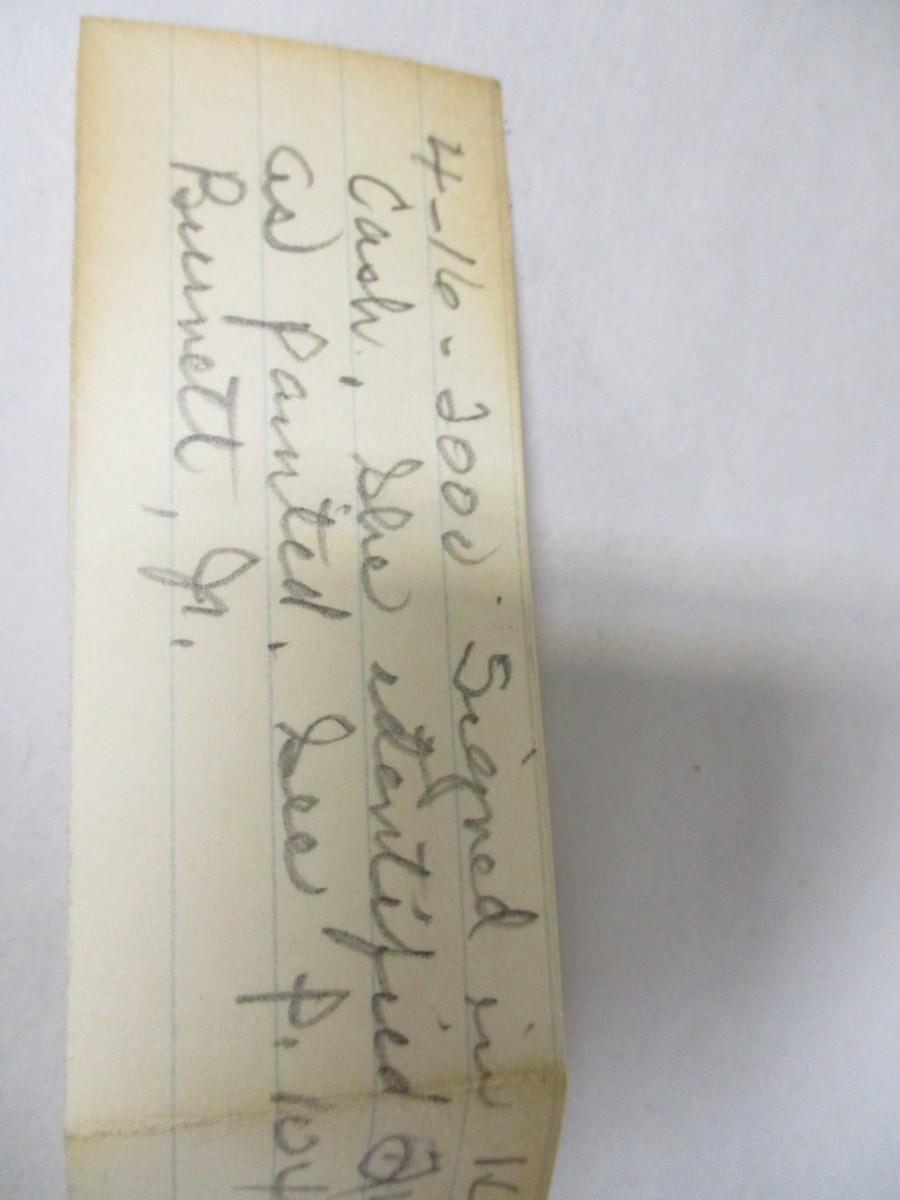 4-16-2000 Signed in
Cash. She identified
as Painted. See p. 104
Burnett, Jr.